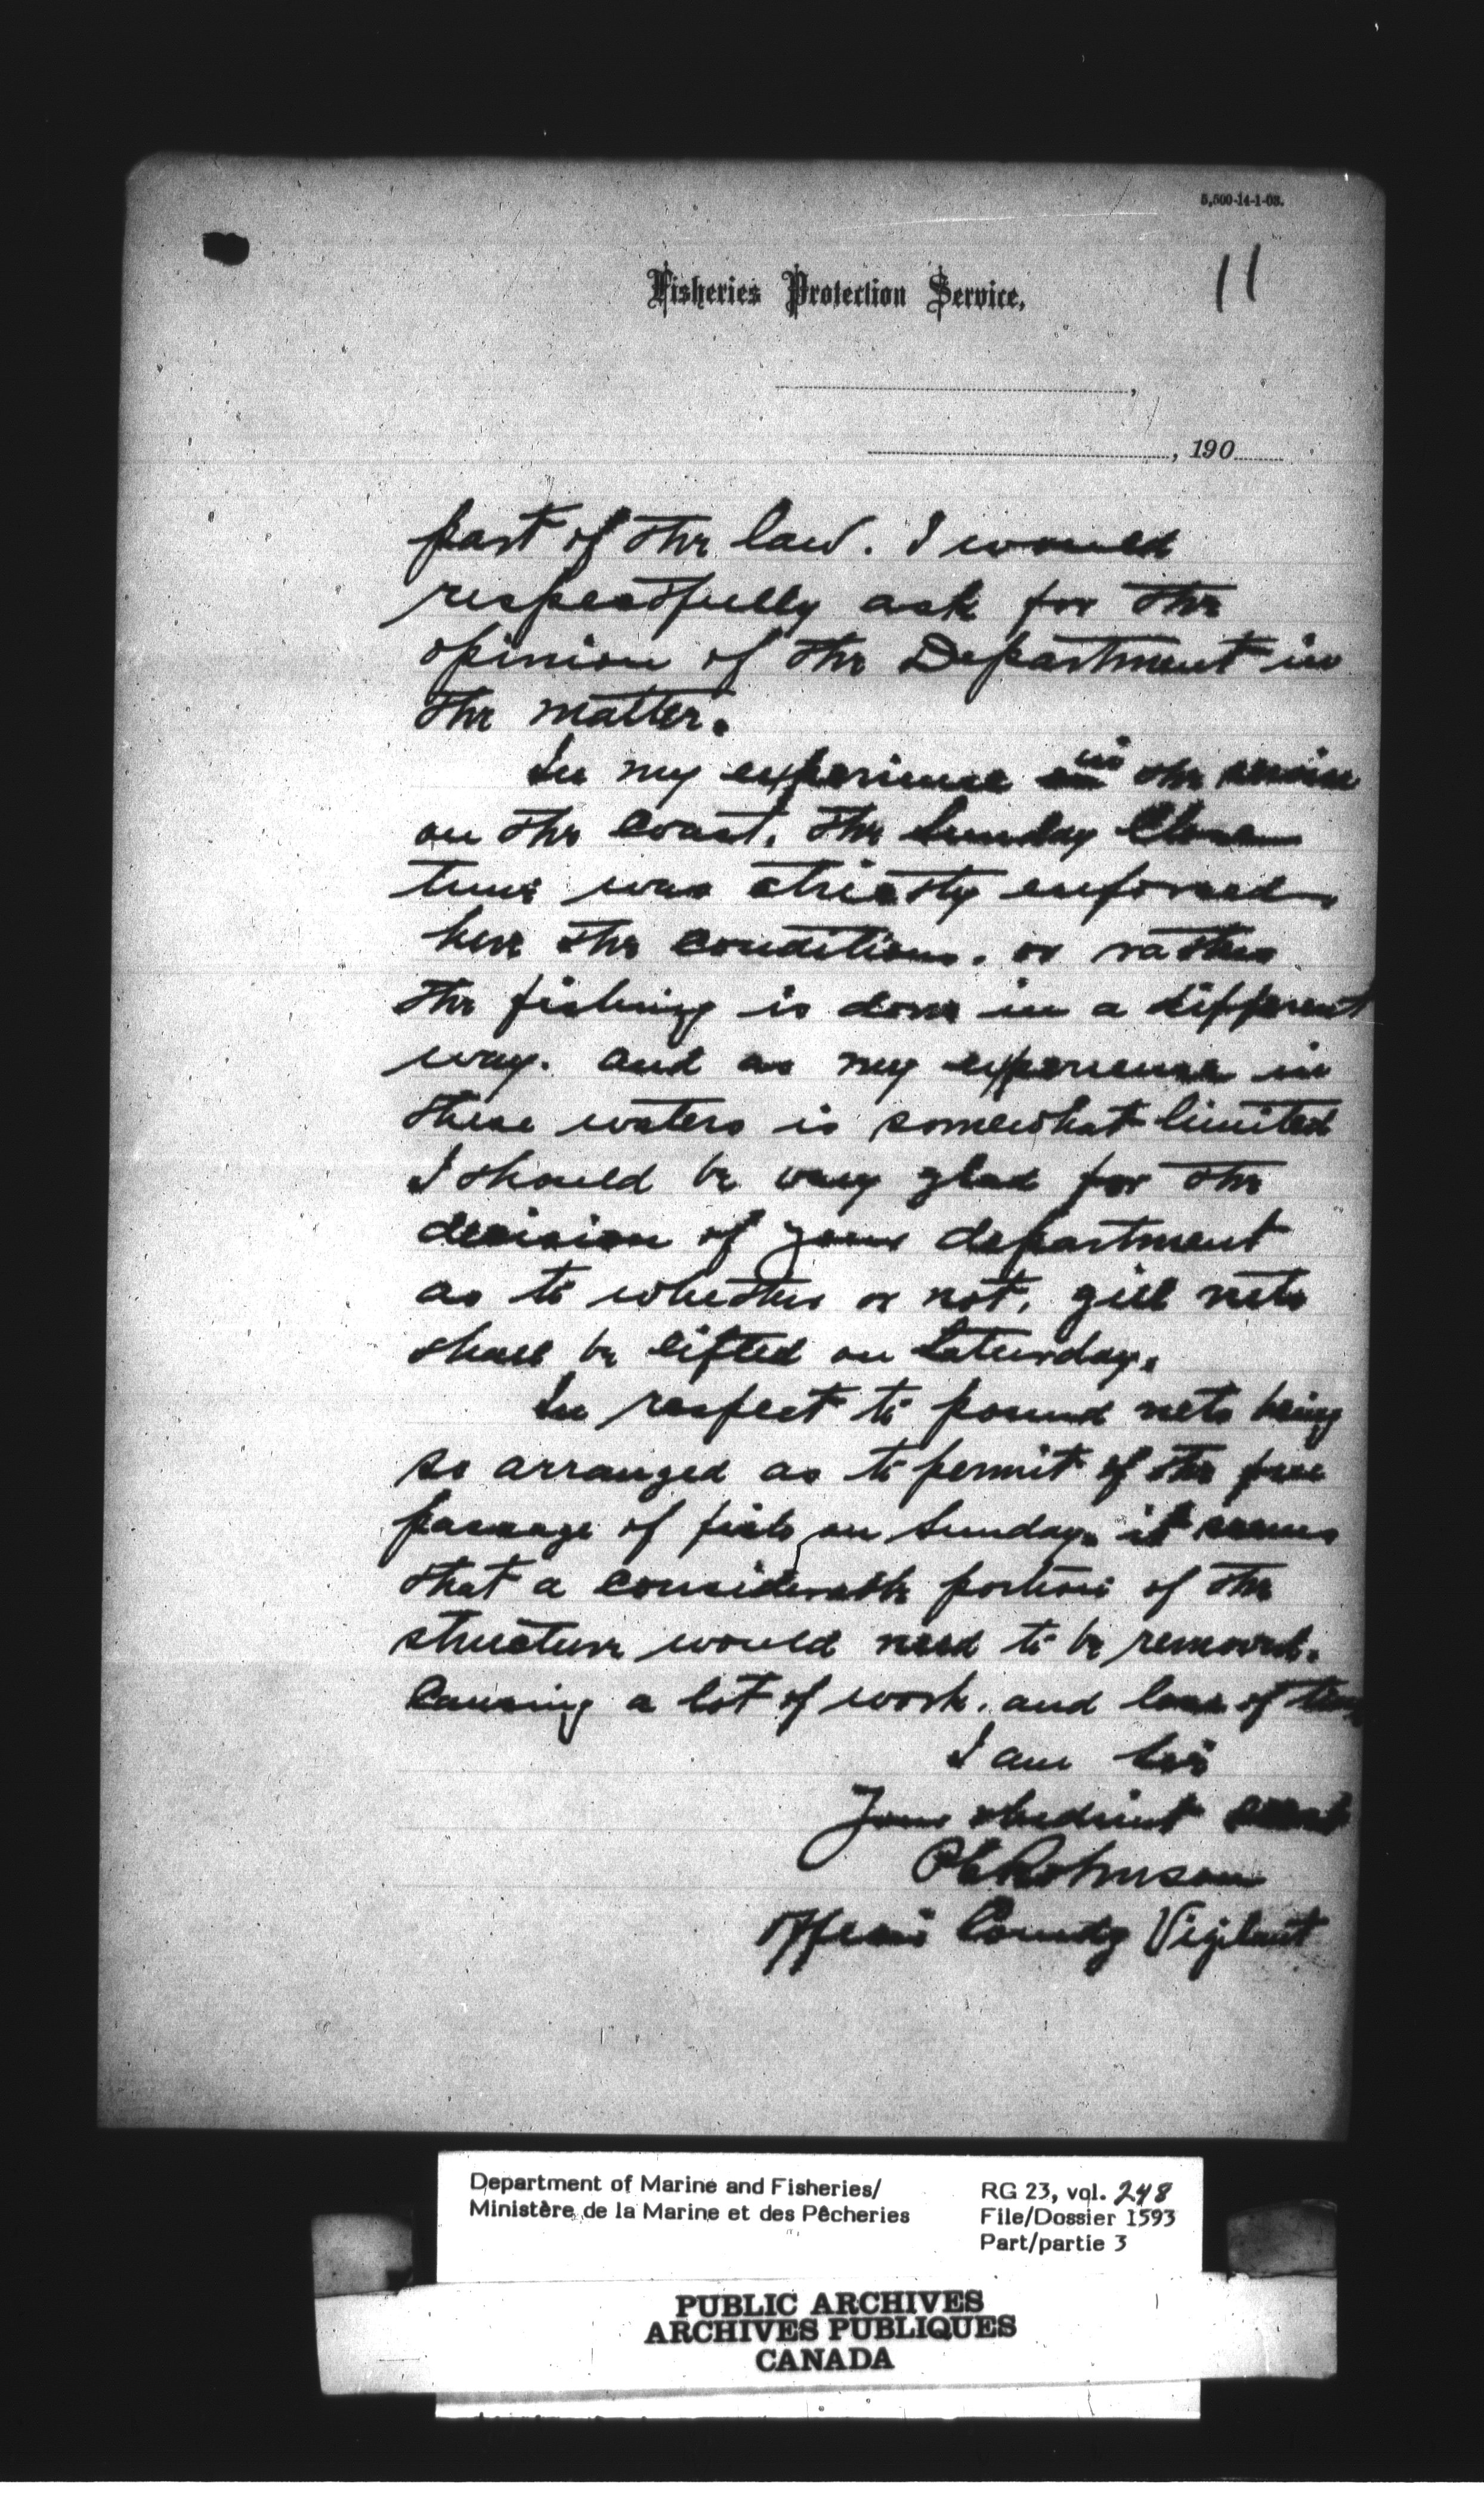 5,500-14-1-03.
Fisheries Protection Service,
11
, 190
part of the law. I would
respectfully ask for the
opinion of the Department in
the matter.
In my experience in the service
on the coast, the Sunday Close
time was strictly enforced,
here the conditions, or rather
the fishing is done in a different
way. and as my experience in
these waters is somewhat limited
I should be very glad for the
decision of your department
as to whether or not, gill nets
shall be lifted on Saturday.
In respect to pound nets being
so arranged as to permit of the free
passage of fish on Sunday. it seems
that a considerable portion of the
structure would need to be removed.
Causing a lot of work, and loss of time
I am Sir
Your obedient servant
Robinson
Officer Comdg Vigilant
Department of Marine and Fisheries/
Ministère de la Marine et des Pêcheries
RG 23, vol. 248
File/Dossier 1593
Part/partie 3
PUBLIC ARCHIVES
ARCHIVES PUBLIQUES
CANADA